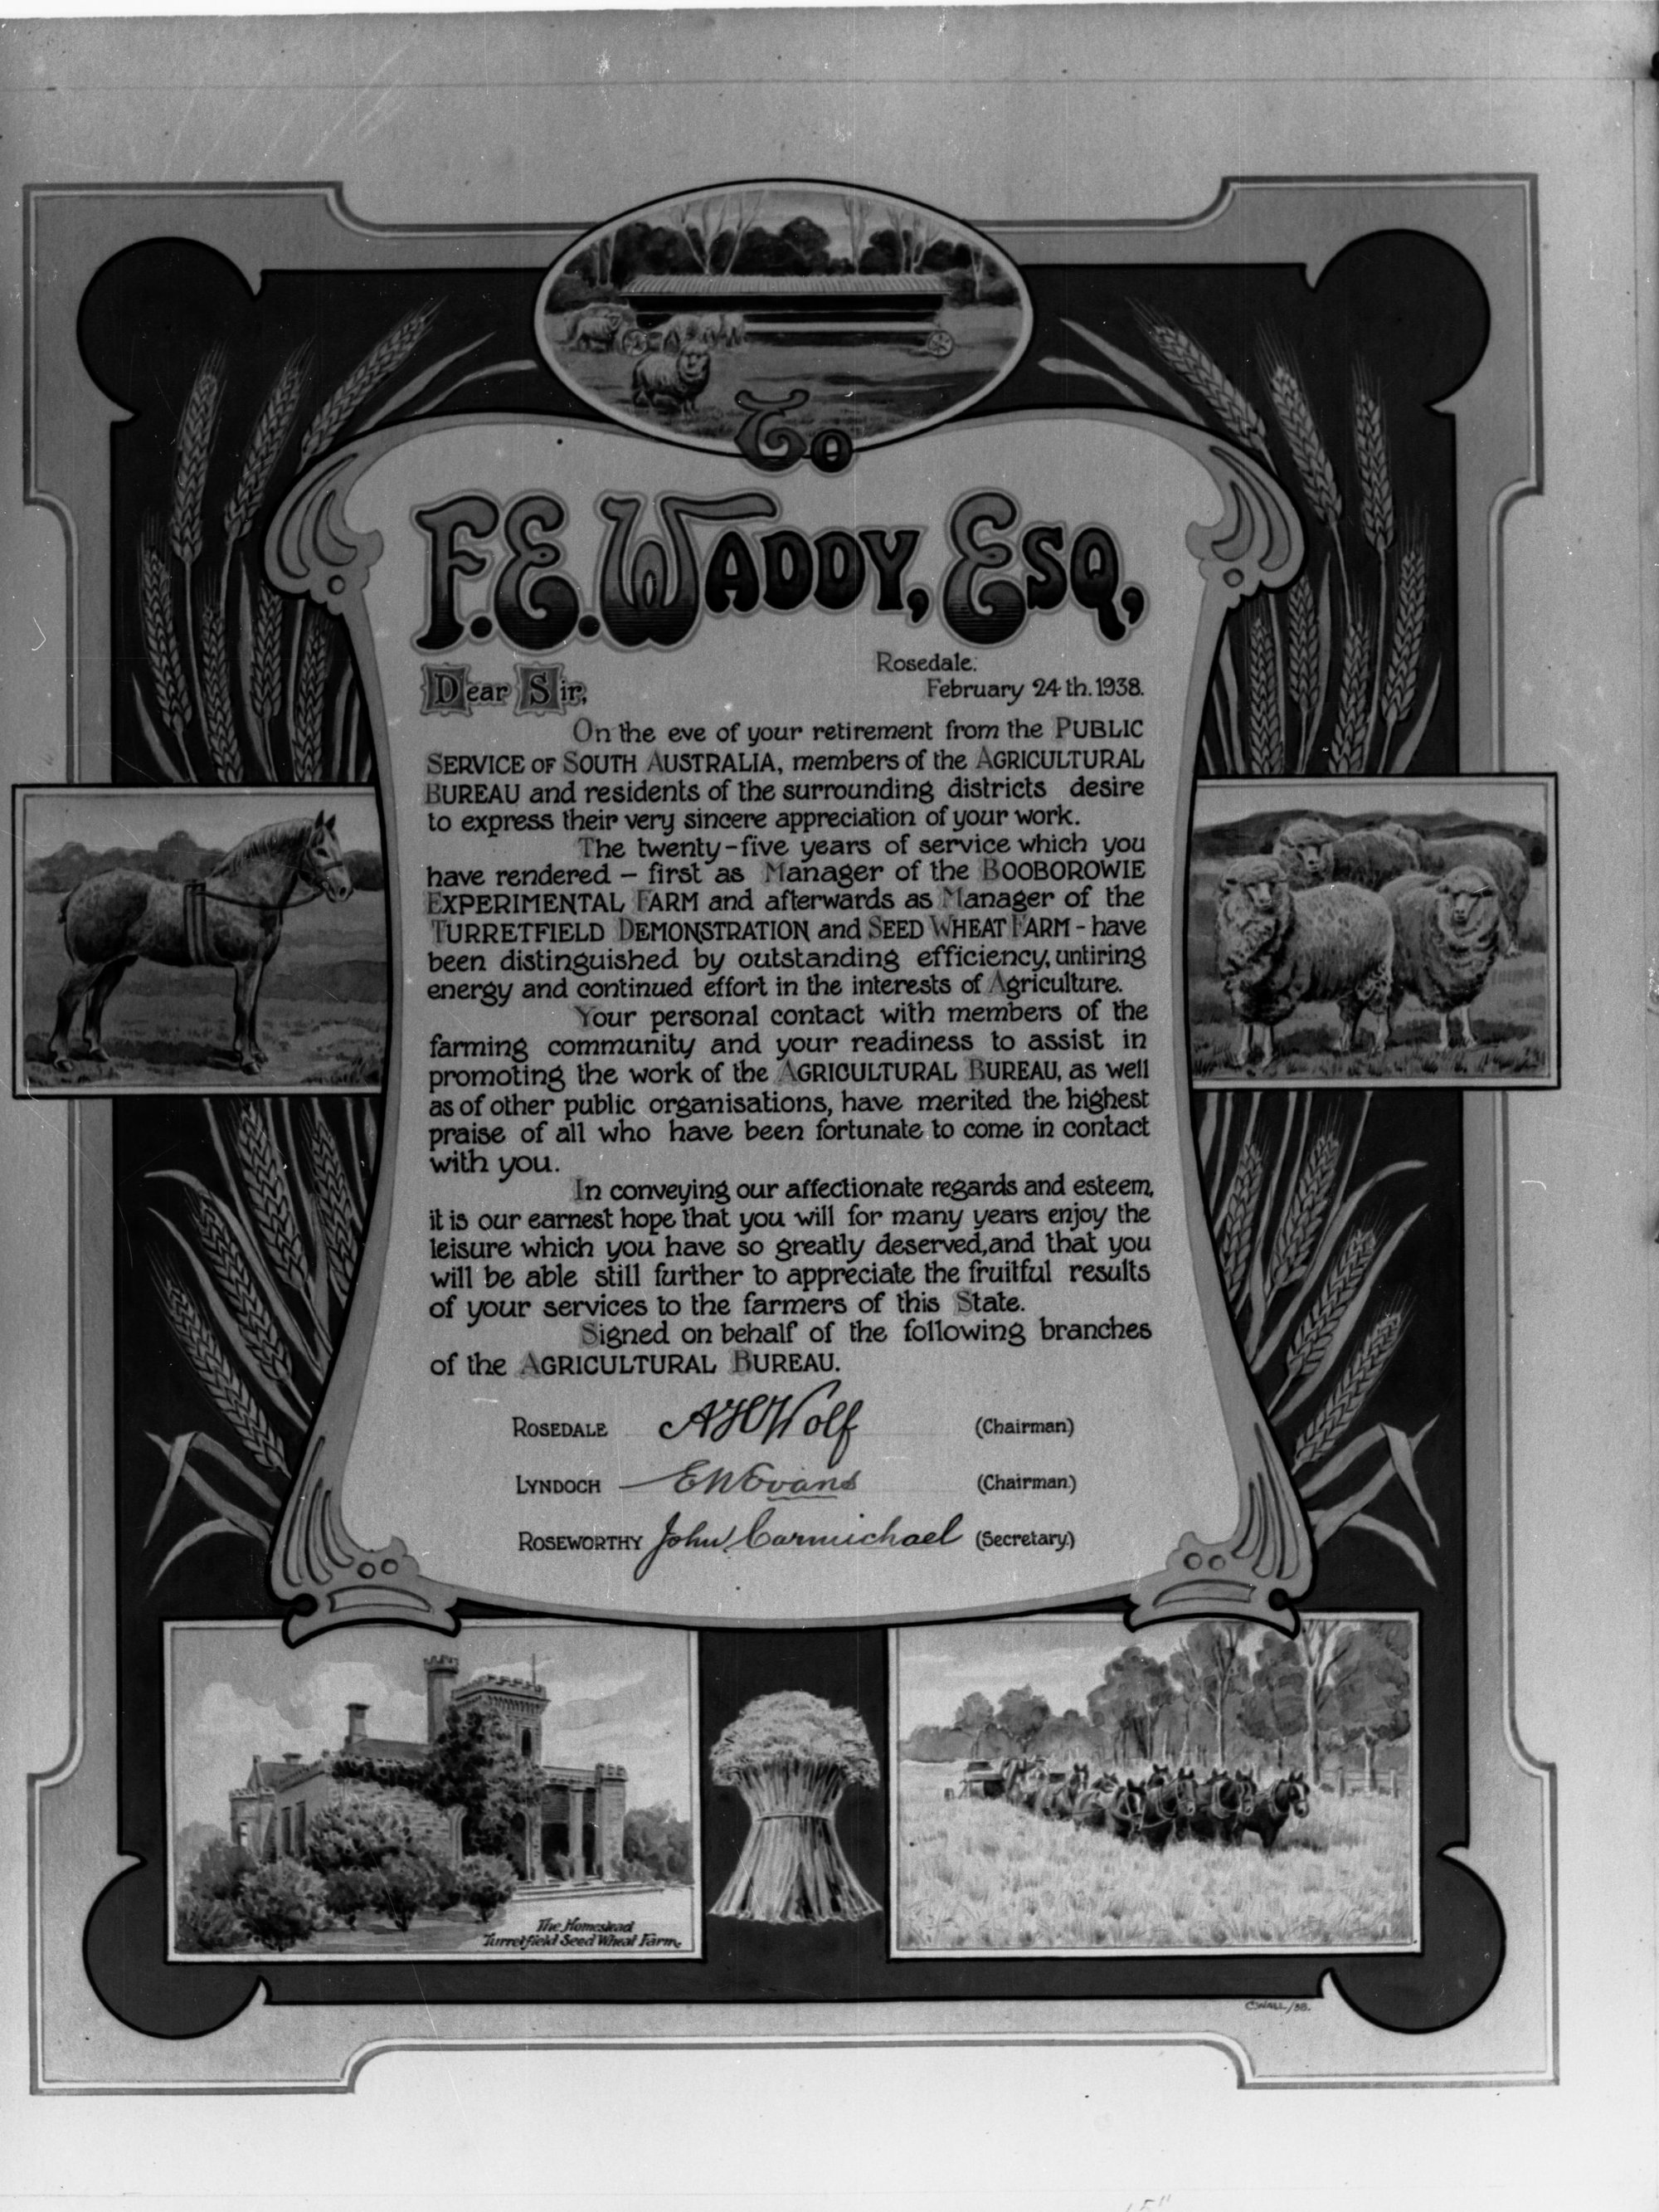 To
F.E. WADDY, ESQ,
Rosedale.
Dear Sir,
February 24th. 1938.
On the eve of your retirement from the PUBLIC
SERVICE OF SOUTH AUSTRALIA, members of the AGRICULTURAL
BUREAU and residents of the surrounding districts desire
to express their very sincere appreciation of your work.
The twenty-five years of service which you
have rendered – first as Manager of the BOOBOROWIE
EXPERIMENTAL FARM and afterwards as Manager of the
TURRETFIELD DEMONSTRATION and SEED WHEAT FARM - have
been distinguished by outstanding efficiency, untiring
energy and continued effort in the interests of Agriculture.
Your personal contact with members of the
farming community and your readiness to assist in
promoting the work of the AGRICULTURAL BUREAU, as well
as of other public organisations, have merited the highest
praise of all who have been fortunate to come in contact
with you.
In conveying our affectionate regards and esteem,
it is our earnest hope that you will for many years enjoy the
leisure which you have so greatly deserved, and that you
will be able still further to appreciate the fruitful results
of your services to the farmers of this State.
Signed on behalf of the following branches
of the AGRICULTURAL BUREAU.
ROSEDALE AHWolf (Chairman)
LYNDOCH EWEvans (Chairman)
ROSEWORTHY John Carmichael (Secretary.)
The Homestead
Turretfield Seed Wheat Farm.
C.WALL/38.
15"